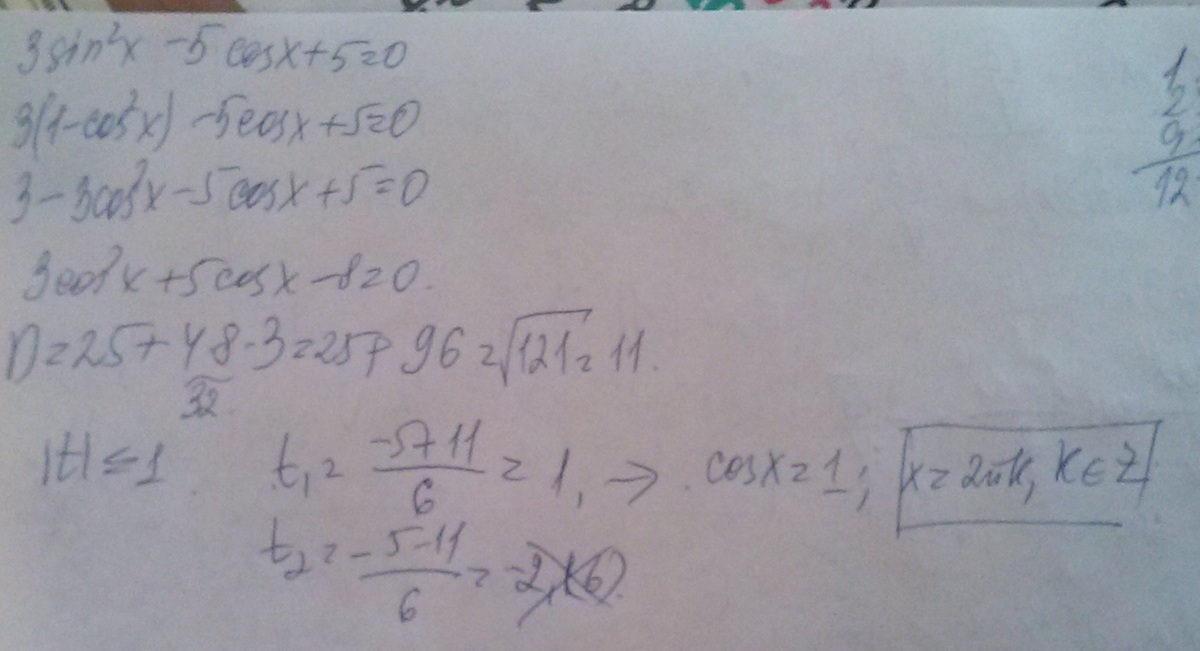 3sin²x -5cosx+5=0
3(1-cos²x) -5cosx+5=0
3-3cos²x-5cosx+5=0
3cos²x+5cosx-8=0.
D=25+4·8·3=25+96=√121=11.
32
|t|≤1 t₁=(-5+11)/6=1, → cosx=1; x=2πk, k∈Z
t₂=(-5-11)/6=-2,(6)
1
2
9
12